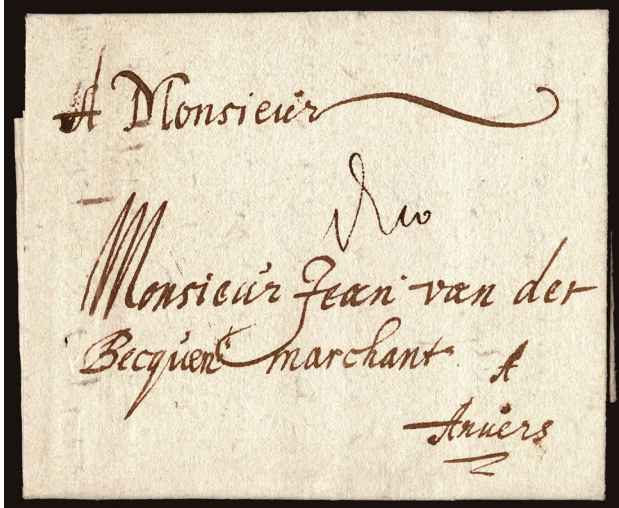 A Monsieur
Monsieur Jean van der
Becquen marchant A
Anvers